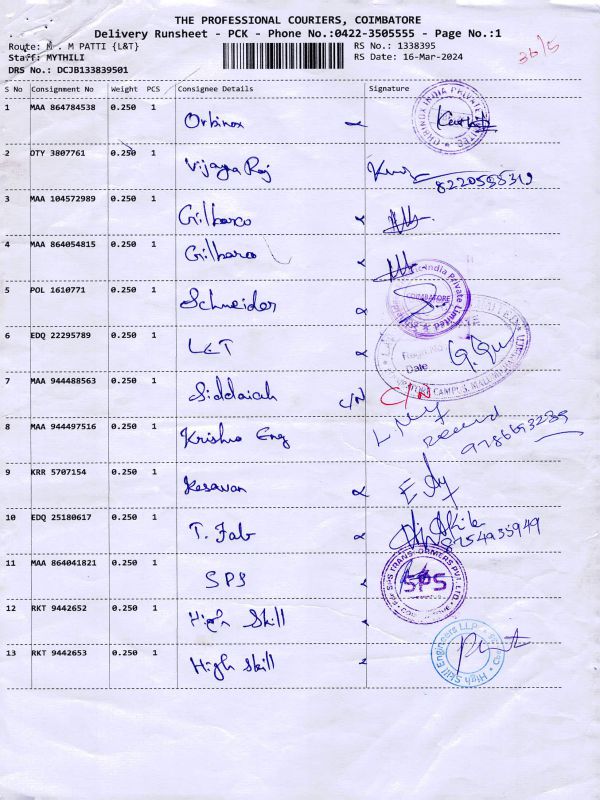 THE PROFESSIONAL COURIERS, COIMBATORE
Delivery Runsheet - PCK - Phone No.:0422-3505555 - Page No.:1
Route: M . M PATTI {L&T} RS No.: 1338395
Staff: MYTHILI RS Date: 16-Mar-2024
DRS No.: DCJB133839501
36/5
S No Consignment No Weight PCS Consignee Details Signature
1 MAA 864784538 0.250 1 Orbinox
2 OTY 3807761 0.250 1 Vijaya Raj 8220535319
3 MAA 104572989 0.250 1 Gilbarco
4 MAA 864054815 0.250 1 Gilbarco
5 POL 1610771 0.250 1 Schneider COIMBATORE
6 EDQ 22295789 0.250 1 L&T Date
7 MAA 944488563 0.250 1 Siddaiah C/N C/N
8 MAA 944497516 0.250 1 Krishna Eng
9 KRR 5707154 0.250 1 Kesavan
10 EDQ 25180617 0.250 1 T. Fab 8754935949
11 MAA 864041821 0.250 1 SPS SPS
12 RKT 9442652 0.250 1 High Skill
13 RKT 9442653 0.250 1 High Skill High Skill Engineers LLP